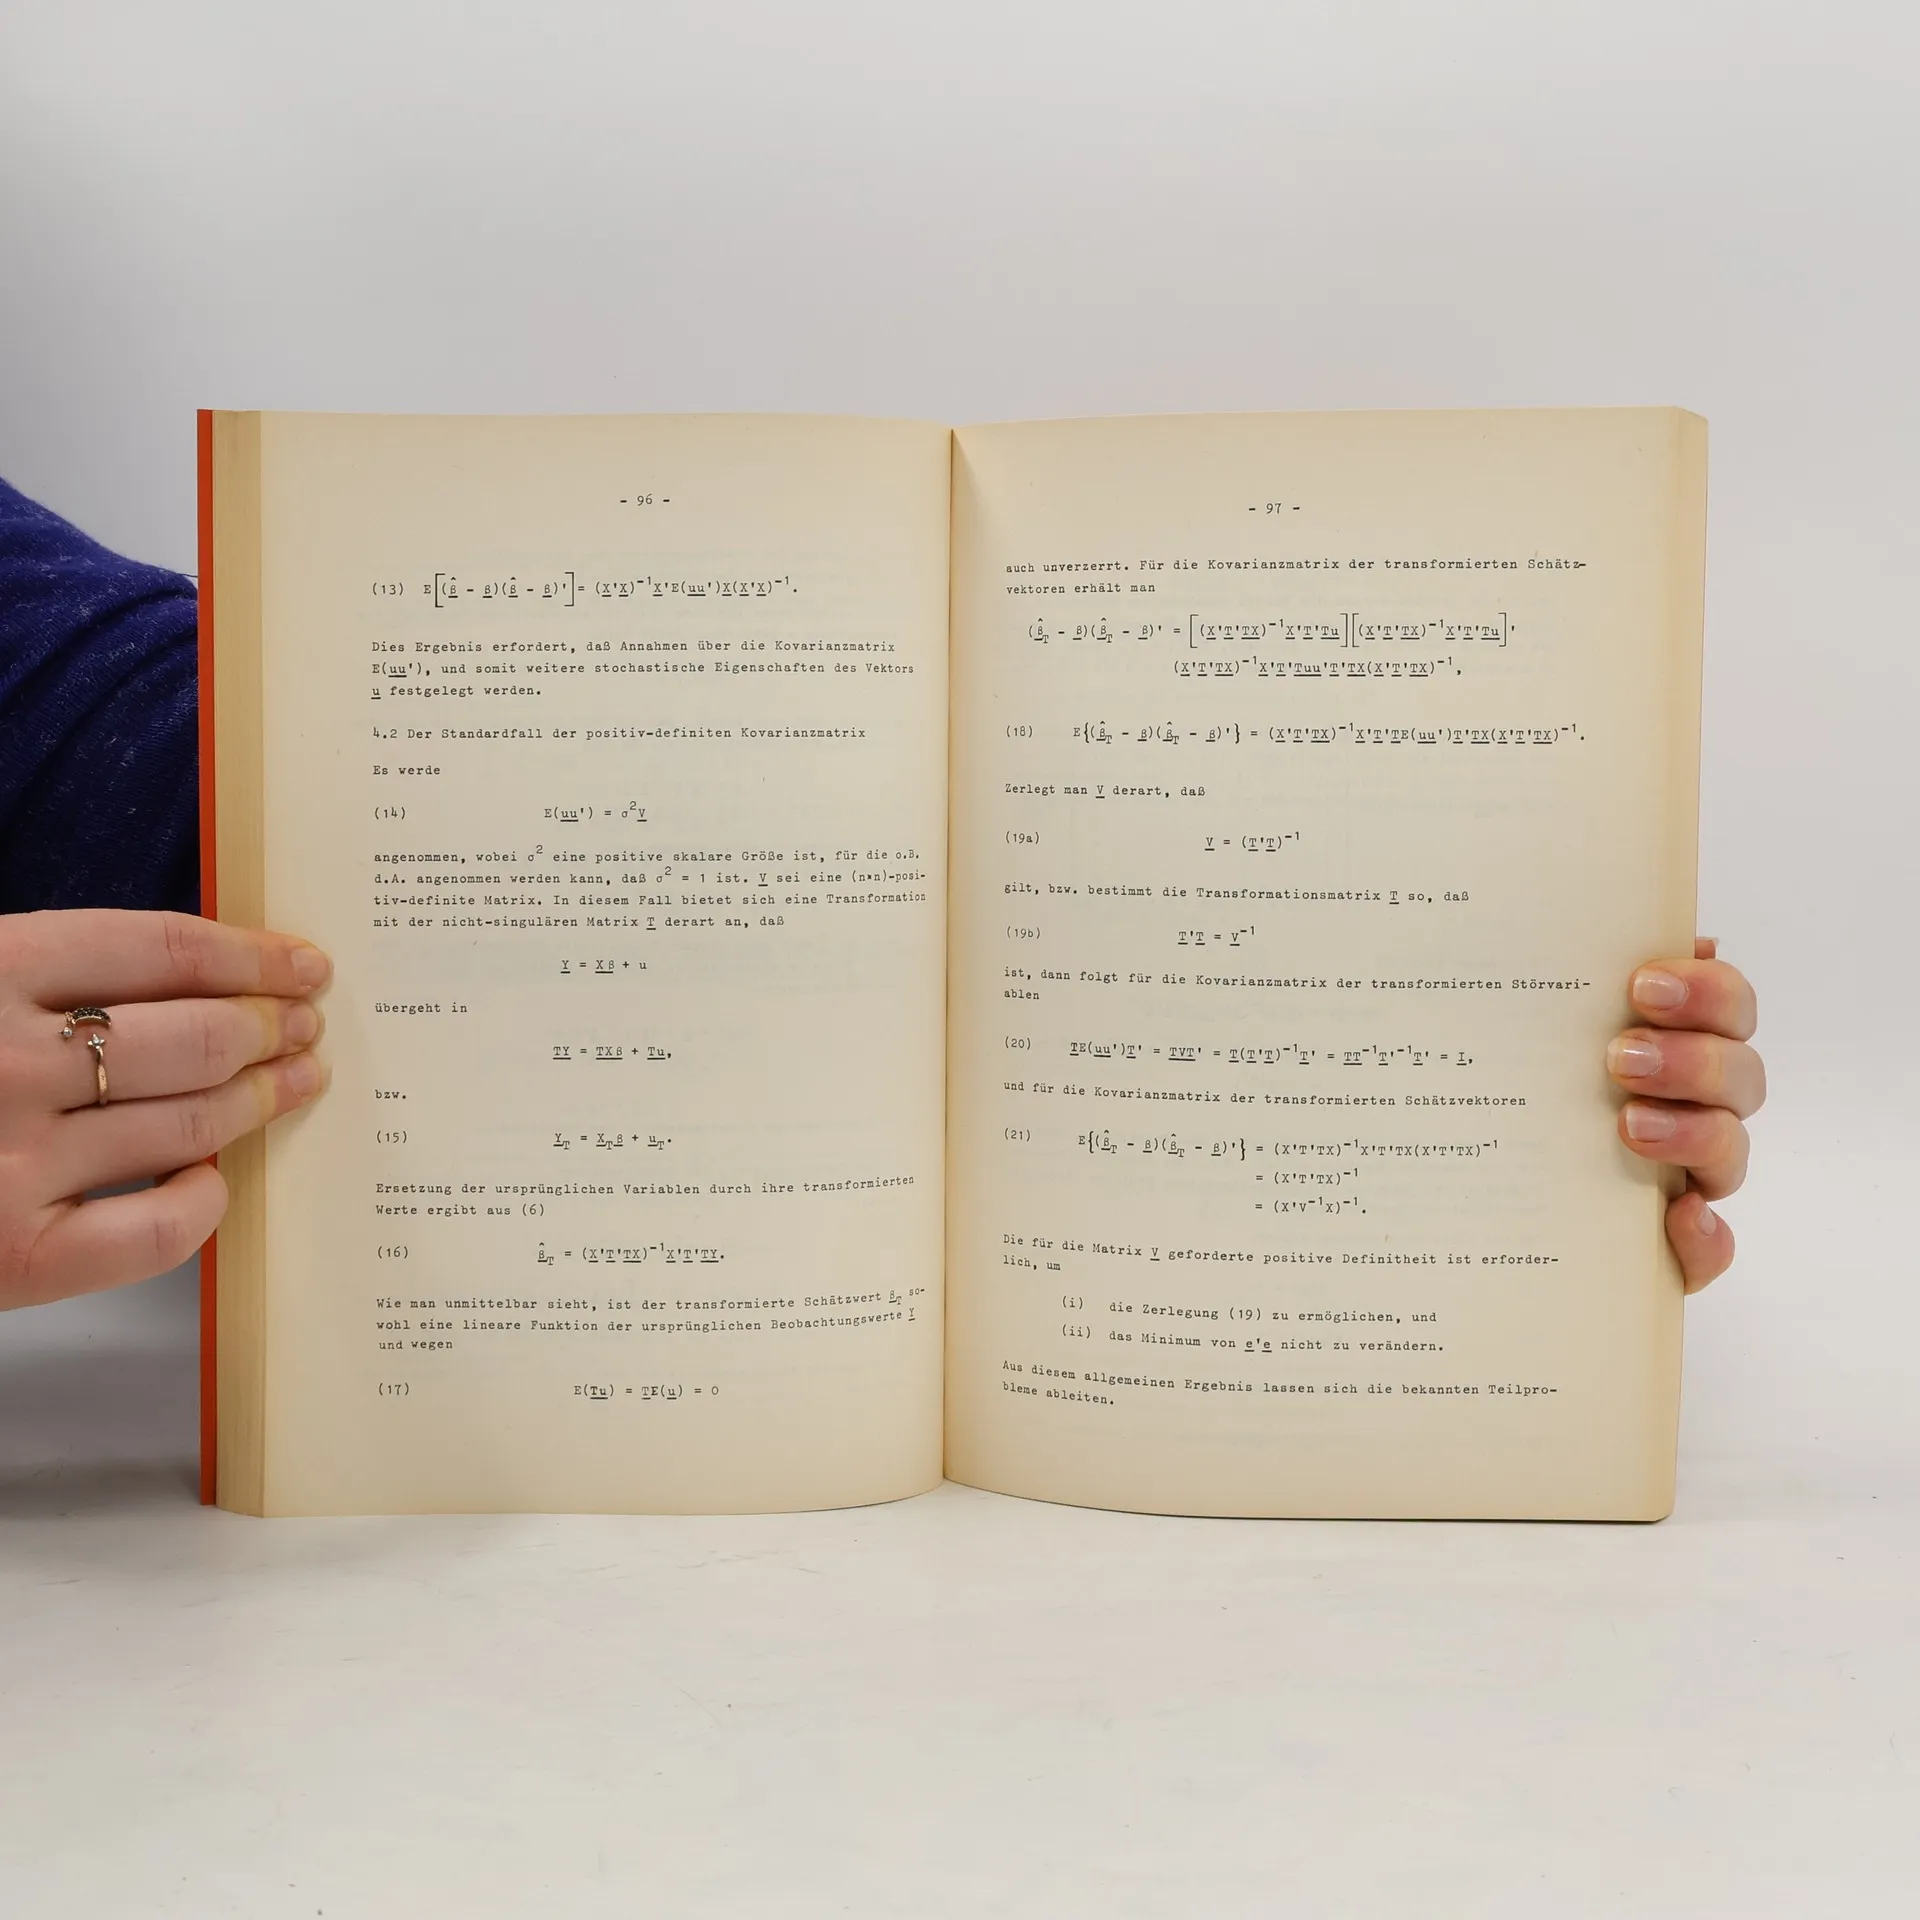 - 96 -
(13) E[(β̂ - β)(β̂ - β)']= (X'X)⁻¹X'E(uu')X(X'X)⁻¹.
Dies Ergebnis erfordert, daß Annahmen über die Kovarianzmatrix
E(uu'), und somit weitere stochastische Eigenschaften des Vektors
u festgelegt werden.
4.2 Der Standardfall der positiv-definiten Kovarianzmatrix
Es werde
(14) E(uu') = σ²V
angenommen, wobei σ² eine positive skalare Größe ist, für die o.B.
d.A. angenommen werden kann, daß σ² = 1 ist. V sei eine (n*n)-posi-
tiv-definite Matrix. In diesem Fall bietet sich eine Transformation
mit der nicht-singulären Matrix T derart an, daß
Y = Xβ + u
übergeht in
TY = TXβ + Tu,
bzw.
(15) Y_T = X_Tβ + u_T.
Ersetzung der ursprünglichen Variablen durch ihre transformierten
Werte ergibt aus (6)
(16) β̂_T = (X'T'TX)⁻¹X'T'TY.
Wie man unmittelbar sieht, ist der transformierte Schätzwert β_T so-
wohl eine lineare Funktion der ursprünglichen Beobachtungswerte Y
und wegen
(17) E(Tu) = TE(u) = 0
- 97 -
auch unverzerrt. Für die Kovarianzmatrix der transformierten Schätz-
vektoren erhält man
(β̂_T - β)(β̂_T - β)' = [(X'T'TX)⁻¹X'T'Tu][(X'T'TX)⁻¹X'T'Tu]'
(X'T'TX)⁻¹X'T'Tuu'T'TX(X'T'TX)⁻¹,
(18) E{(β̂_T - β)(β̂_T - β)'} = (X'T'TX)⁻¹X'T'TE(uu')T'TX(X'T'TX)⁻¹.
Zerlegt man V derart, daß
(19a) V = (T'T)⁻¹
gilt, bzw. bestimmt die Transformationsmatrix T so, daß
(19b) T'T = V⁻¹
ist, dann folgt für die Kovarianzmatrix der transformierten Störvari-
ablen
(20) TE(uu')T' = TVT' = T(T'T)⁻¹T' = TT⁻¹T'⁻¹T' = I,
und für die Kovarianzmatrix der transformierten Schätzvektoren
(21) E{(β̂_T - β)(β̂_T - β)'} = (X'T'TX)⁻¹X'T'TX(X'T'TX)⁻¹
= (X'T'TX)⁻¹
= (X'V⁻¹X)⁻¹.
Die für die Matrix V geforderte positive Definitheit ist erforder-
lich, um
(i) die Zerlegung (19) zu ermöglichen, und
(ii) das Minimum von e'e nicht zu verändern.
Aus diesem allgemeinen Ergebnis lassen sich die bekannten Teilpro-
bleme ableiten.